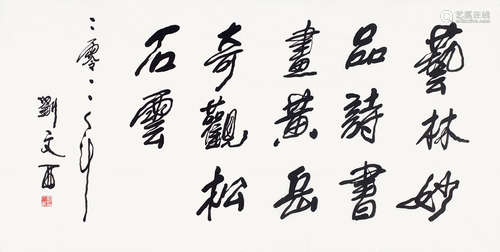 藝林妙
品詩書
畫黃岳
奇觀松
石雲
二零年
劉文西
艺狐在线